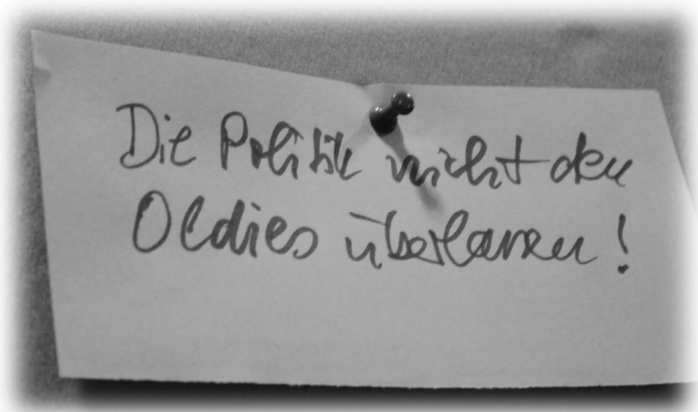 Die Politik nicht den
Oldies überlassen!